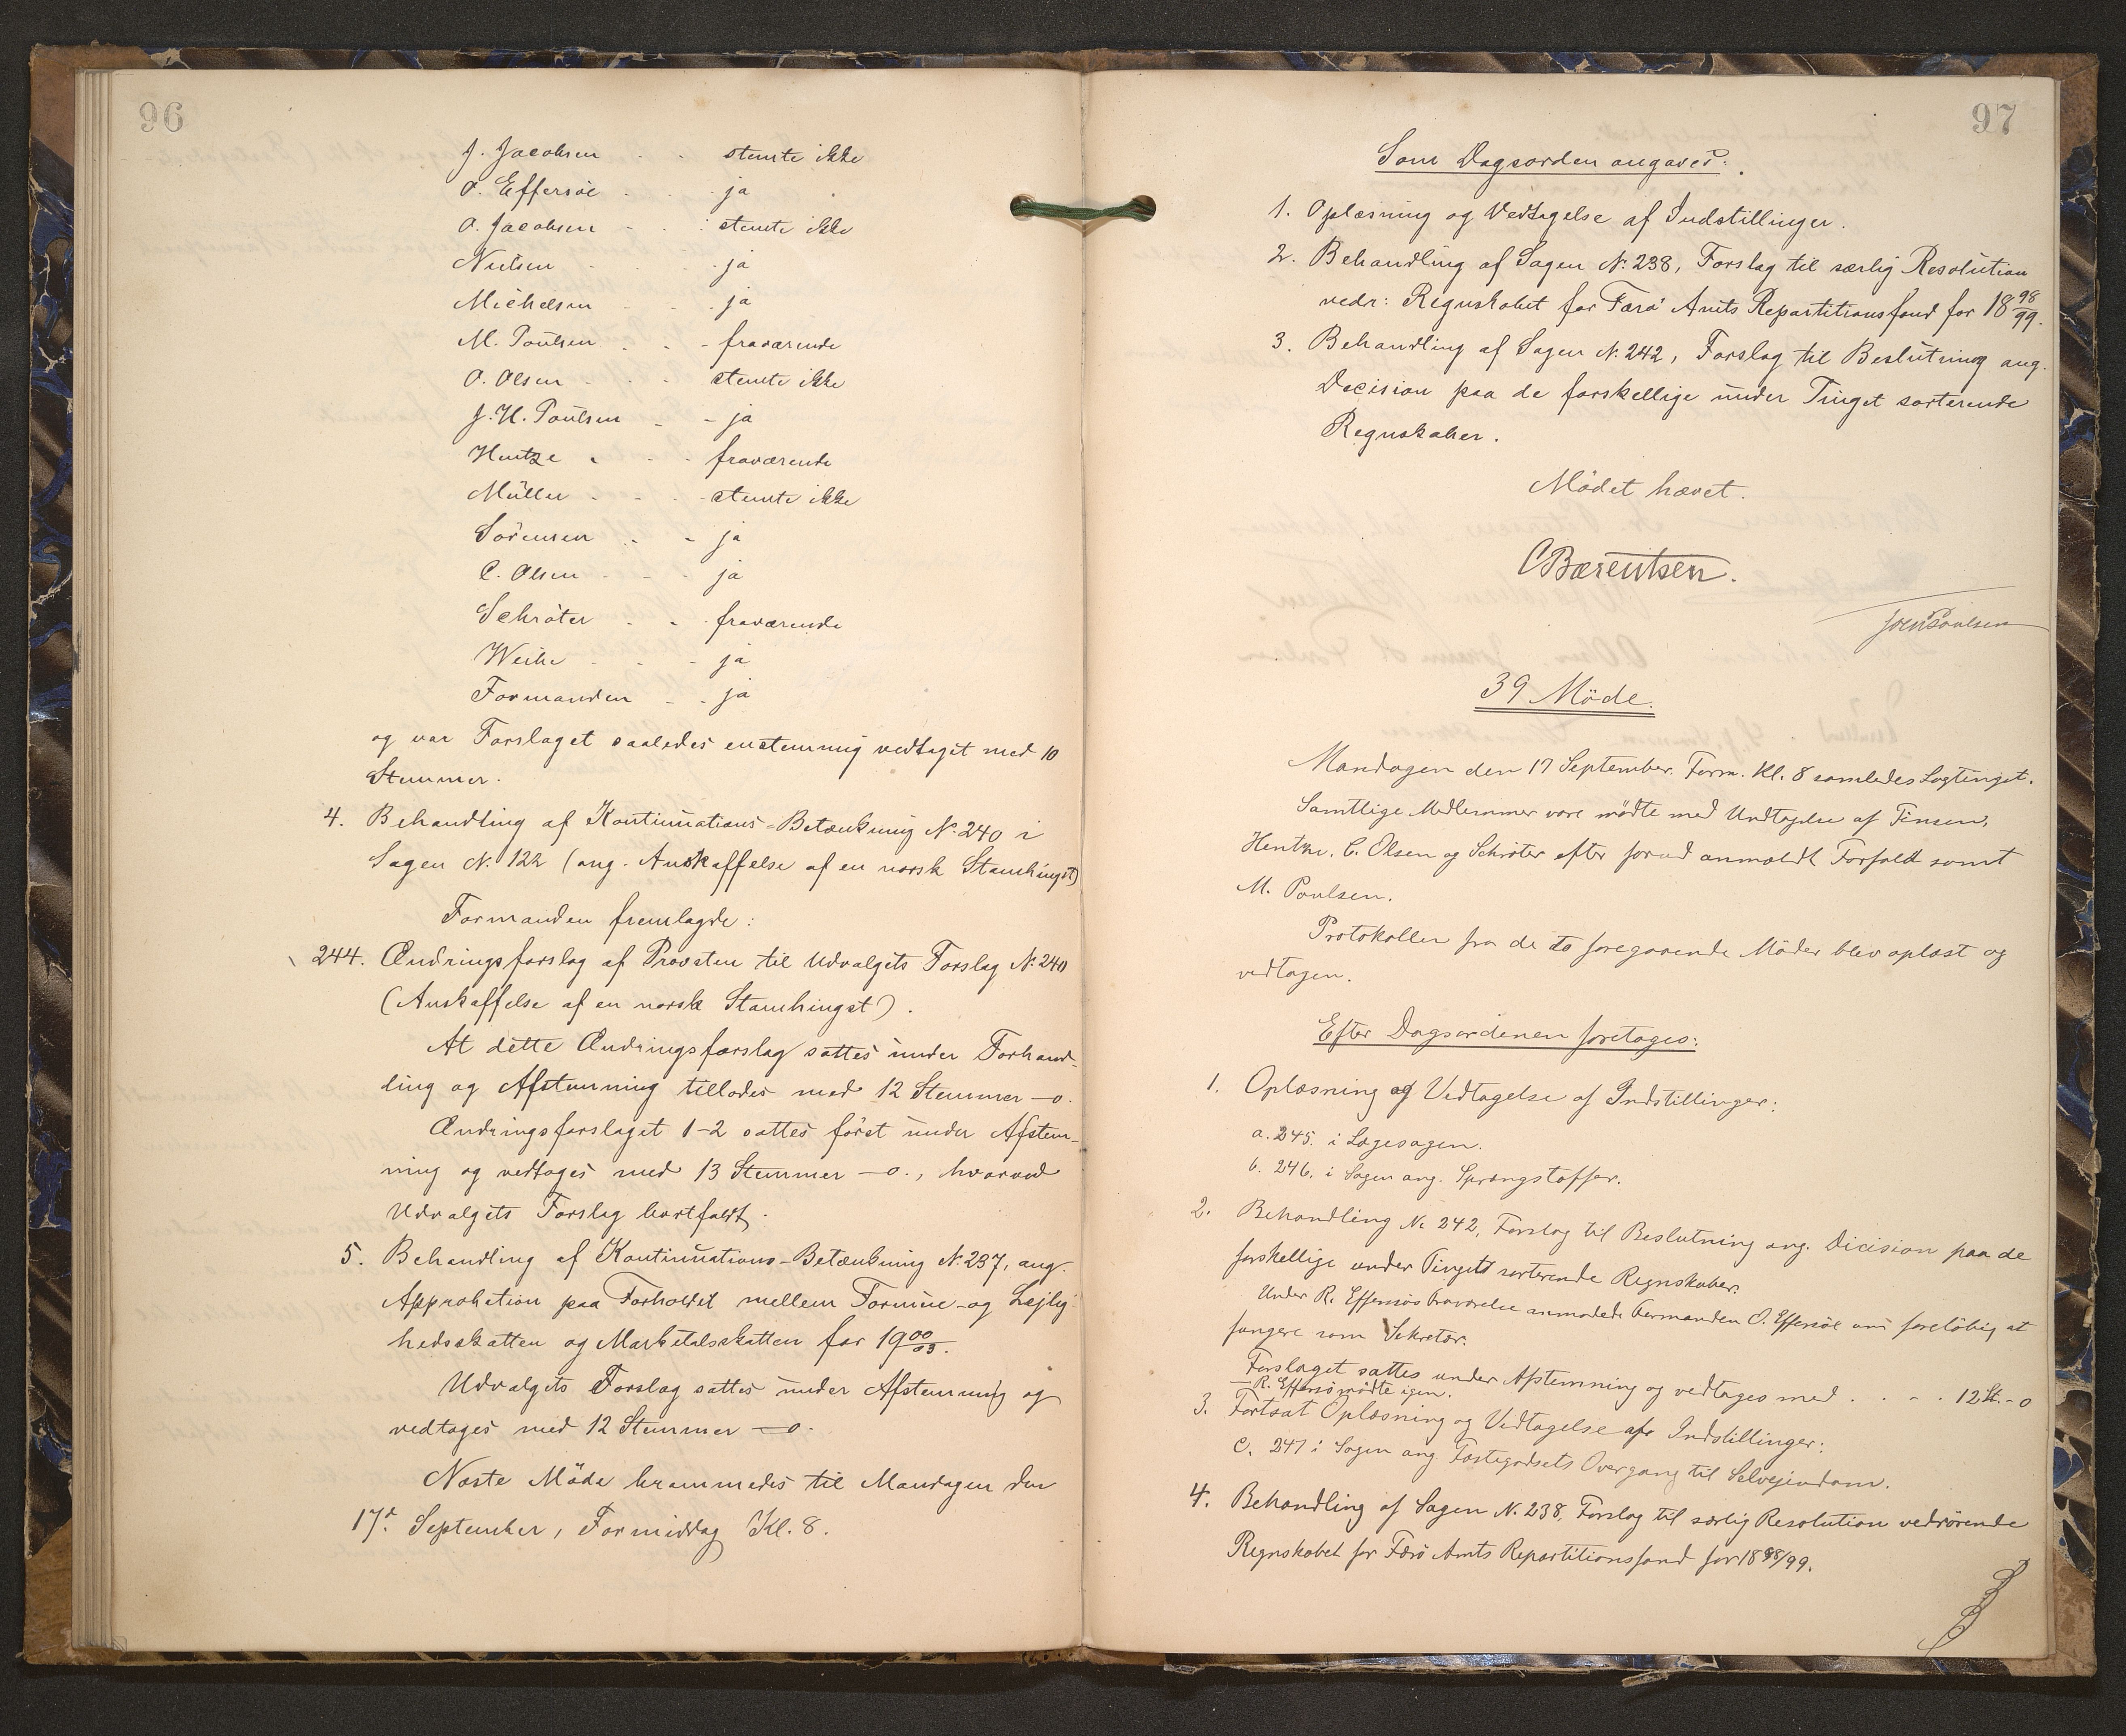 96
J. Jacobsen - - stemte ikke
O. Effersöe - - - ja
O. Jacobsen - - - stemte ikke
Nielsen - - - ja
Michelsen - - - ja
M. Poulsen - - - fraværende
O. Olsen - - - stemte ikke
J. H. Poulsen - - ja
Hentze - - - fraværende
Müller - - - stemte ikke
Sörensen - - ja
C. Olsen - - - ja
Schröter - - - fraværende
Weihe - - - ja
Formanden - - ja
og var Forslaget saaledes enstemmig vedtaget med 10
Stemmer.
4. Behandling af Kontinuations-Betænkning N. 240 i
Sagen N. 122 (ang. Anskaffelse af en norsk Stamhingst)
Formanden fremlagde:
244. Ændringsforslag af Provsten til Udvalgets Forslag N. 240
(Anskaffelse af en norsk Stamhingst).
At dette Ændringsforslag sattes under Forhand-
ling og Afstemning tillodes med 12 Stemmer —0.
Ændringsforslaget 1-2 sattes först under Afstem-
ning og vedtoges med 13 Stemmer —0., hvorved
Udvalgets Forslag bortfaldt.
5. Behandling af Kontinuations-Betænkning N. 237, ang.
Approbation paa Forholdet mellem Formue- og Lejlig-
hedsskatten og Marketalsskatten for 19 00/03.
Udvalgets Forslag sattes under Afstemning og
vedtoges med 12 Stemmer —0.
Næste Möde berammedes til Mandagen den
17d. September, Formiddag Kl. 8.
97
Som Dagsorden angaves:
1. Oplæsning og Vedtagelse af Indstillinger.
2. Behandling af Sagen N. 238, Forslag til særlig Resolution
vedr: Regnskabet for Færö Amts Repartitionsfond for 18 98/99.
3. Behandling af Sagen N. 242, Forslag til Beslutning ang.
Decision paa de forskellige under Tinget sorterende
Regnskaber.
Mödet hævet.
CBærentsen.
JoenPoulsen
39 Möde.
Mandagen den 17 September. Form. Kl. 8 samledes Lagtinget.
Samtlige Medlemmer vare mödte med Undtagelse af Finsen,
Hentze, C. Olsen og Schröter efter forud anmeldt Forfald samt
M. Poulsen.
Protokollen fra de to foregaaende Möder blev oplæst og
vedtagen.
Efter Dagsordenen foretoges:
1. Oplæsning og Vedtagelse af Indstillinger:
a. 245. i Lægesagen.
b. 246. i Sagen ang. Sprængstoffer.
2. Behandling N. 242, Forslag til Beslutning ang. Dicision paa de
forskellige under Tinget sorterende Regnskaber.
Under R. Effersöes Fraværelse anmodede Formanden O. Effersöe om foreløbig at
fungere som Sekretær.
Forslaget sattes under Afstemning og vedtoges med . . - . 12 St. - 0
— R. Effersö mödte igen.
3. Fortsat Oplæsning og Vedtagelse af Indstillinger:
C. 247 i Sagen ang Fæstegodsets Overgang til Selvejendom.
4. Behandling af Sagen N. 238, Forslag til særlig Resolution vedrörende
Regnskabet for Færö Amts Repartitionsfond for 1898/99.